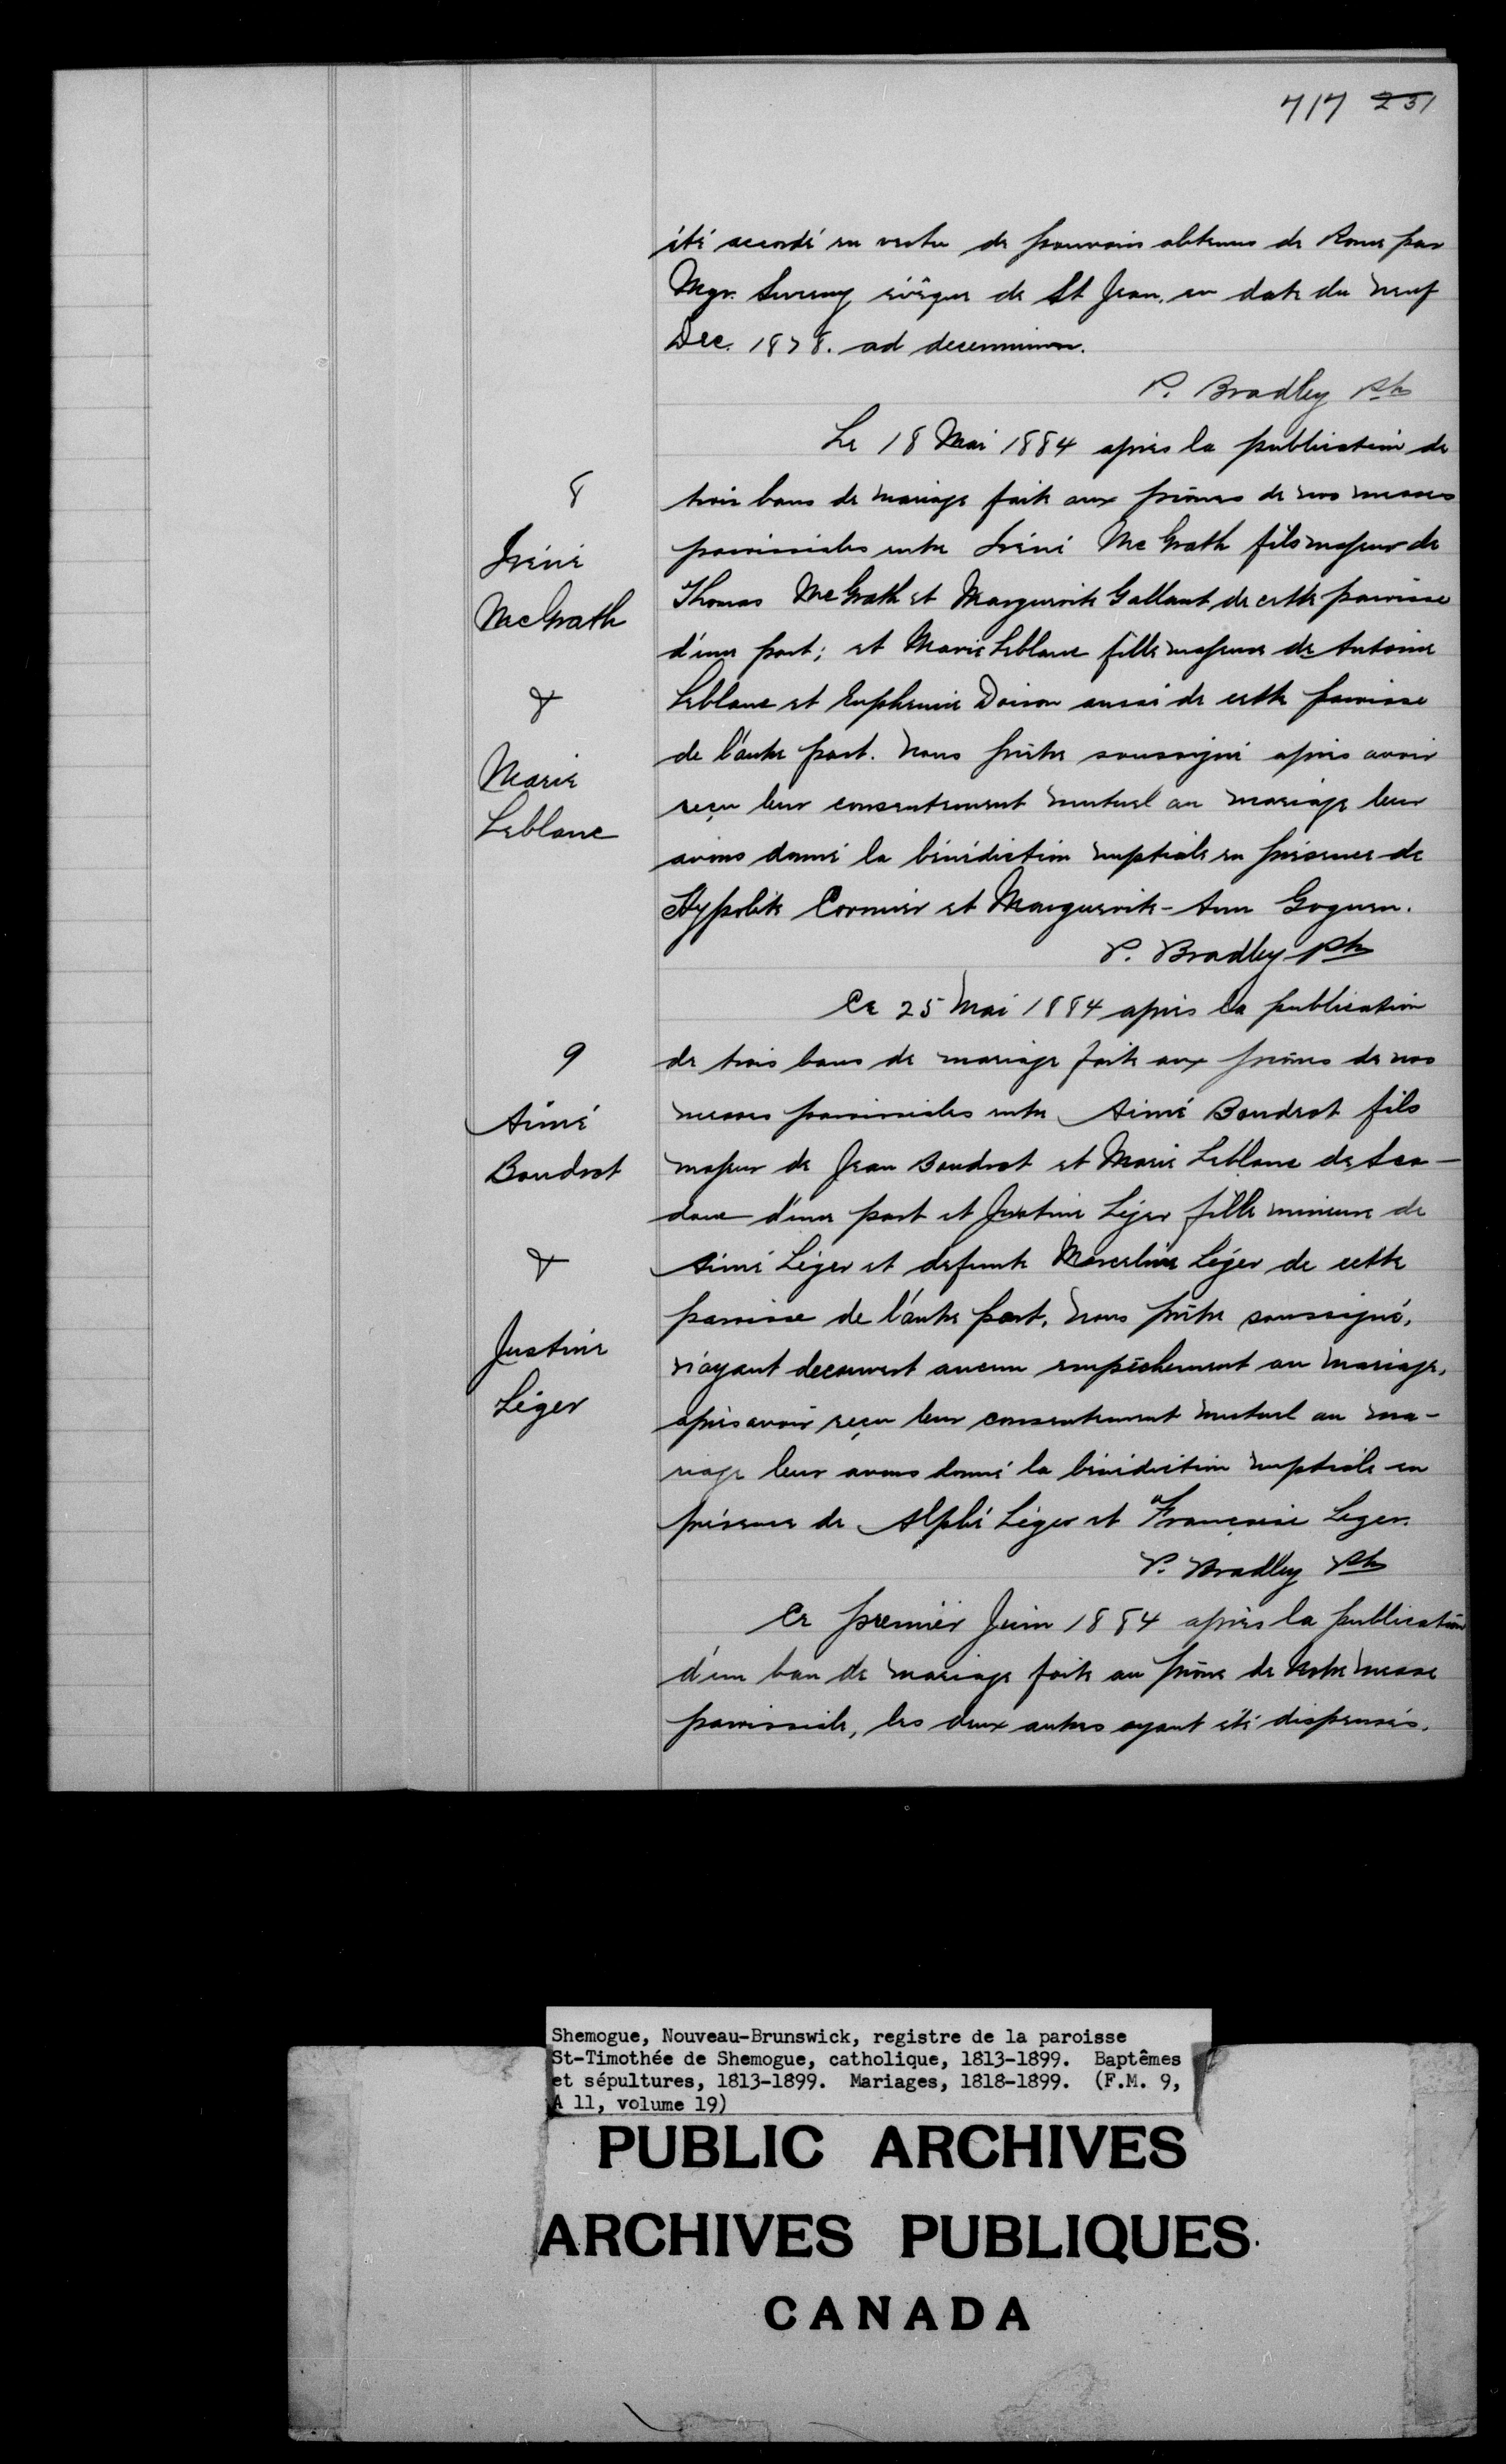 717 231
été accordé en vertu de pouvoirs obtenus de Rome par
Mgr. Sweeny évêque de St Jean, en date du neuf
Dec. 1878. ad decennium.
P. Bradley Ptr
Le 18 Mai 1884 après la publication de
8
trois bans de mariage faite aux prônes de nos messes
paroissiales entre Iréné McGrath fils majeur de
Iréné
Thomas McGrath et Marguerite Gallant de cette paroisse
McGrath
d'une part; et Marie Leblanc fille majeure de Antoine
&
Leblanc et Euphemie Doiron aussi de cette paroisse
de l'autre part. Nous prêtre soussigné après avoir
Marie
reçu leur consentement mutuel au mariage leur
Leblanc
avons donné la bénédiction nuptiale en présence de
Hypolite Cormier et Marguerite-Ann Goguen.
P. Bradley Ptr
Ce 25 Mai 1884 après la publication
9
de trois bans de mariage faite aux prônes de nos
messes paroissiales entre Aimé Boudrot fils
Aimé
majeur de Jean Boudrot et Marie Leblanc de Sca-
Boudrot
douc d'une part et Justine Léger fille mineure de
&
Aimé Léger et defunte Marceline Léger de cette
paroisse de l'autre part, Nous prêtre soussigné,
Justine
n'ayant decouvert aucun empêchement au mariage,
Léger
après avoir reçu leur consentement mutuel au ma-
riage leur avons donné la bénédiction nuptiale en
présence de Alphé Léger et Françoise Leger.
P. Bradley Ptr
Ce premier Juin 1884 après la publication
d'un ban de mariage faite au prône de notre messe
paroissiale, les deux autres ayant été dispensés.
Shemogue, Nouveau-Brunswick, registre de la paroisse
St-Timothée de Shemogue, catholique, 1813-1899. Baptêmes
et sépultures, 1813-1899. Mariages, 1818-1899. (F.M. 9,
A 11, volume 19)
PUBLIC ARCHIVES
ARCHIVES PUBLIQUES
CANADA